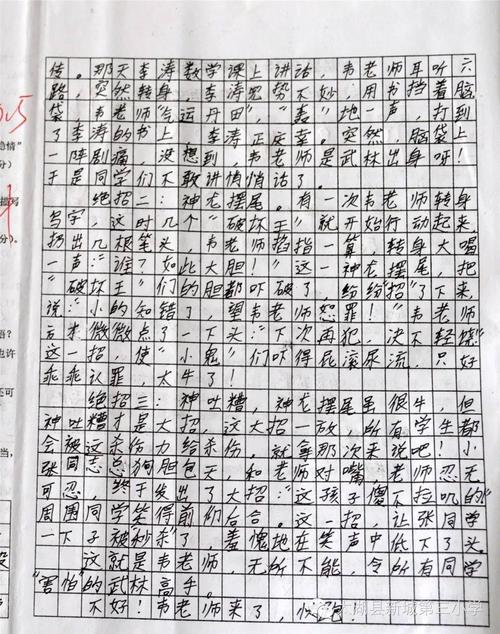 传。那天李涛数学课上讲话，韦老师耳听六
路，突然转身，李涛见势不妙，用书挡着脑
袋，韦老师"气运丹田"，"轰"地一声，打到
了李涛的书上，李涛正庆幸，突然，脑袋上
一阵剧痛，没想到，韦老师是武林出身呀！
于是同学们不敢讲悄悄话了。
绝招二：神龙摆尾。有一次韦老师转身
写字，这时几个"破坏王"就开始行动起来，
扔出几根笔头，韦老师掐指一算，转身大喝
一声："谁？如此大胆！"这一神龙摆尾，把
"破坏王"们的胆都吓破了，纷纷"招"了下来，
说："小的知错了，望韦老师恕罪！"韦老师
方才微微点了一下头："下次再犯，决不轻饶"
这一招，使"小鬼"们吓得屁滚尿流，只好
乖乖认罪，太牛了！
绝招三：神吐糟，神龙摆尾虽很牛，但
神吐糟才是大招，这大招一放，所有学生都
会被这杀伤力给杀伤，就拿那次来说吧！小
张同志点狗胆包天，和老师对嘴，老师忍无
可忍，终于发出了大招："这孩子傻不拉叽的"
周围同学笑得前仰后合。这一招，让张同学
一下子被"秒杀"了，羞愧地在笑声中低下了头。
这就是韦老师，无所不能，令所有同学
"害怕"的武林高手。
不好！韦老师来了，快跑！
县新城第三小学